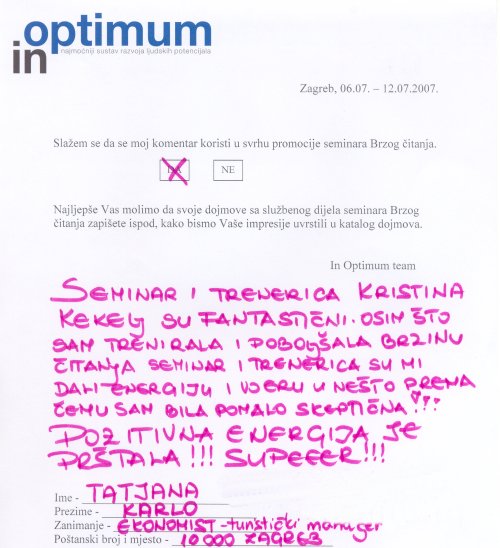 in optimum
najmoćniji sustav razvoja ljudskih potencijala
Zagreb, 06.07. – 12.07.2007.
Slažem se da se moj komentar koristi u svrhu promocije seminara Brzog čitanja.
NE
Najljepše Vas molimo da svoje dojmove sa službenog dijela seminara Brzog
čitanja zapišete ispod, kako bismo Vaše impresije uvrstili u katalog dojmova.
In Optimum team
SEMINAR I TRENERICA KRISTINA
KEKELJ SU FANTASTIČNI. OSIM ŠTO
SAM TRENIRALA I POBOLJŠALA BRZINU
ČITANJA SEMINAR I TRENERICA SU MI
DALI ENERGIJU I VJERU U NEŠTO PREMA
ČEMU SAM BILA POMALO SKEPTIČNA!!!
POZITIVNA ENERGIJA JE
PRŠTALA!!! SUPEEER!!!
Ime - TATJANA
Prezime - KARLO
Zanimanje - EKONOMIST - turistički manager
Poštanski broj i mjesto - 10 000 ZAGREB